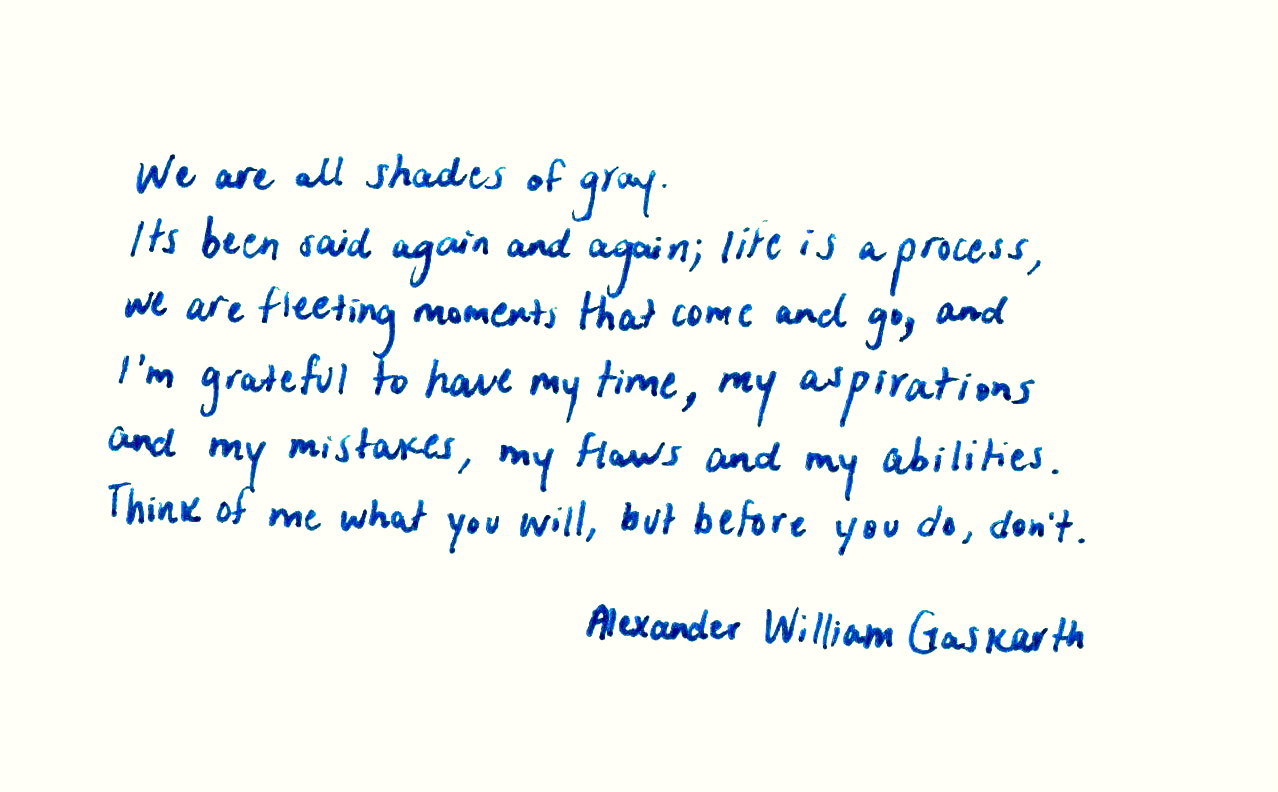 We are all shades of gray.
Its been said again and again; life is a process,
we are fleeting moments that come and go, and
I'm grateful to have my time, my aspirations
and my mistakes, my flaws and my abilities.
Think of me what you will, but before you do, don't.
Alexander William Gaskarth